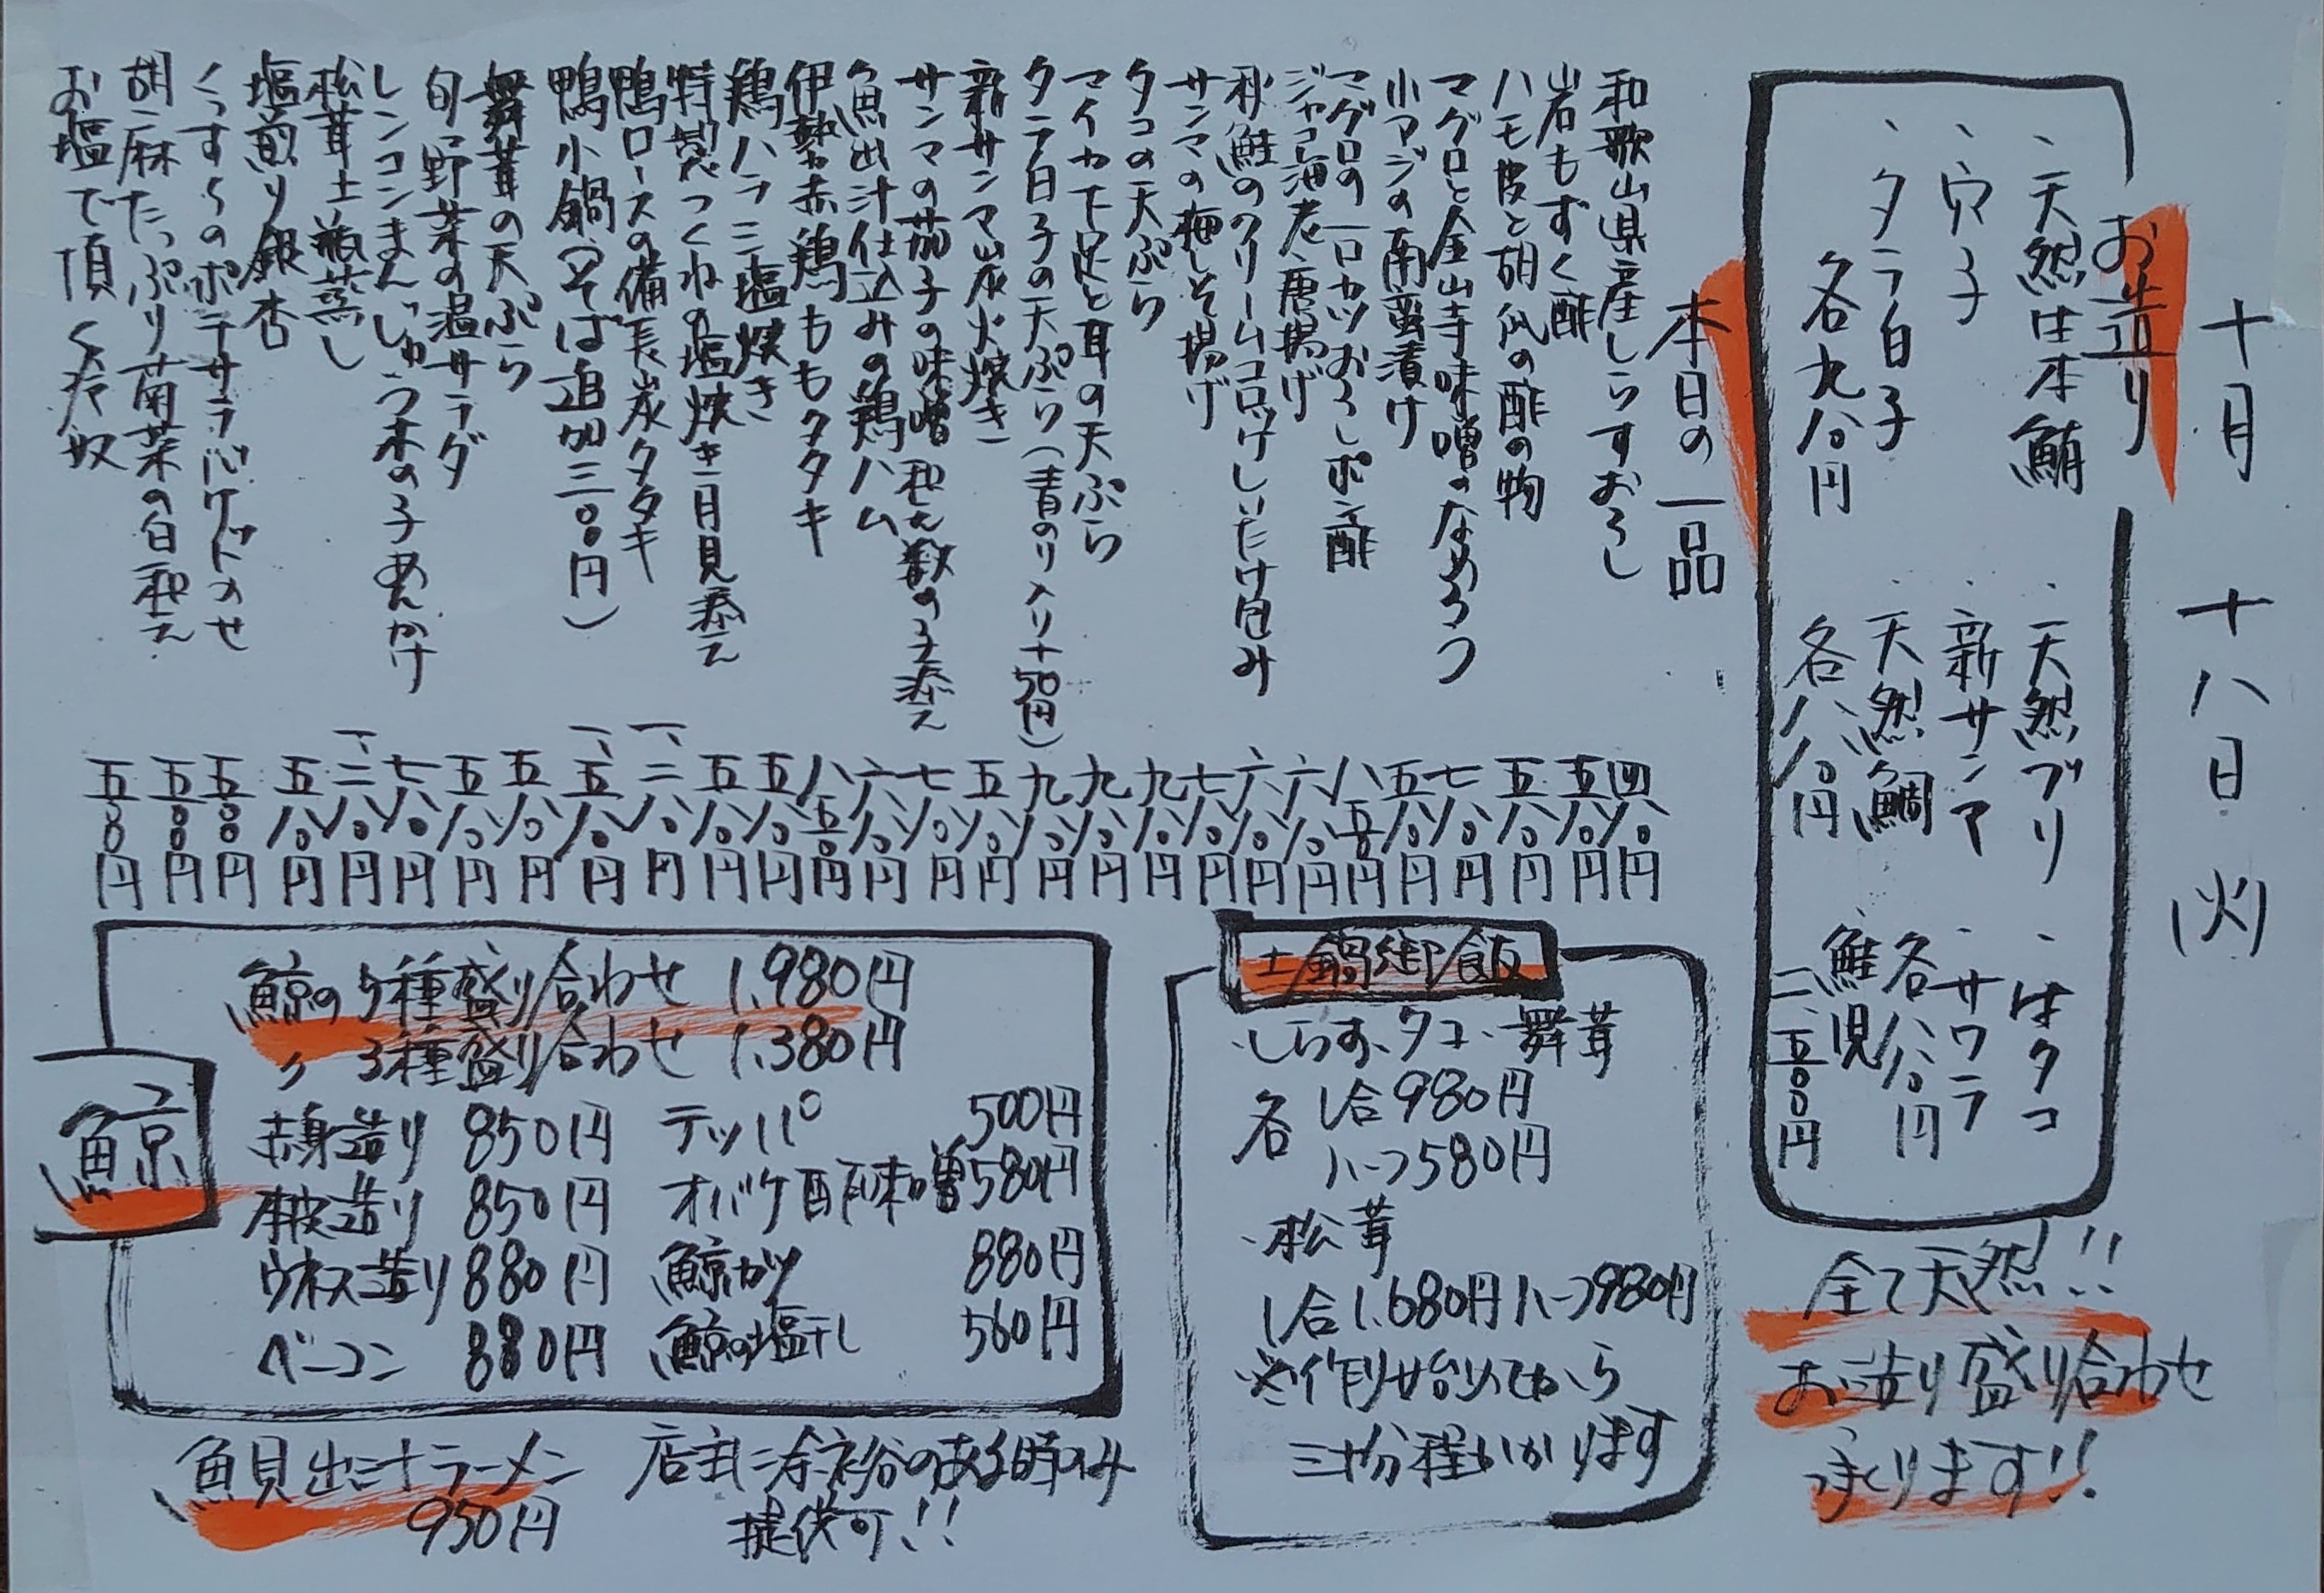 十月 十八日 (火)
お造り
、天然生本鮪
、穴子
、タラ白子
各九八〇円
・天然ブリ
・新サンマ
・天然鯛
各八八〇円
・生タコ
・サワラ
各八八〇円
・鮭児
二、五〇〇円
全て天然!!
お造り盛り合わせ
承ります!!
本日の一品
和歌山県産しらすおろし 四八〇円
岩もずく酢 五八〇円
ハモ皮と胡瓜の酢の物 五八〇円
マグロと金山寺味噌のなめろう 七八〇円
小アジの南蛮漬け 五八〇円
マグロの一口カツおろしポン酢 八五〇円
ジャコ海老唐揚げ 六八〇円
秋鮭のクリームコロッケしいたけ包み 六八〇円
サンマの梅しそ揚げ 七八〇円
タコの天ぷら 九八〇円
マイカ下足と耳の天ぷら 九八〇円
タラ白子の天ぷら(青のり入り+50円) 九八〇円
新サンマ炭火焼き 五八〇円
サンマの茄子の味噌和え数の子添え 七八〇円
魚出汁仕込みの鶏ハム 六八〇円
伊勢赤鶏ももタタキ 八五〇円
鶏ハラミ塩焼き 五八〇円
特製つくねの塩焼き月見添え 五八〇円
鴨ロースの備長炭タタキ 一、二八〇円
鴨小鍋(そば追加三〇〇円) 一、五八〇円
舞茸の天ぷら 五八〇円
旬野菜の温サラダ 五八〇円
レンコンまんじゅう木の子あんかけ 七八〇円
松茸土瓶蒸し 一、二八〇円
塩煎り銀杏 五八〇円
くんすくのポテサラバケットのせ 五〇〇円
胡麻たっぷり菊菜の白和え 五〇〇円
お塩で頂く冷奴 五〇〇円
土鍋御飯
・しらす、タコ・舞茸
各 1合980円
ハーフ580円
・松茸
1合1,680円ハーフ980円
※作り始めてから
三十分程かかります
鯨
鯨の5種盛り合わせ 1,980円
〃 3種盛り合わせ 1,380円
赤身造り 850円 テッパ 500円
本皮造り 850円 オバケ酢味噌 580円
ウネス造り 880円 鯨カツ 880円
ベーコン 880円 鯨の塩干し 560円
魚貝出汁ラーメン 店主に余裕のある時のみ
950円 提供可!!